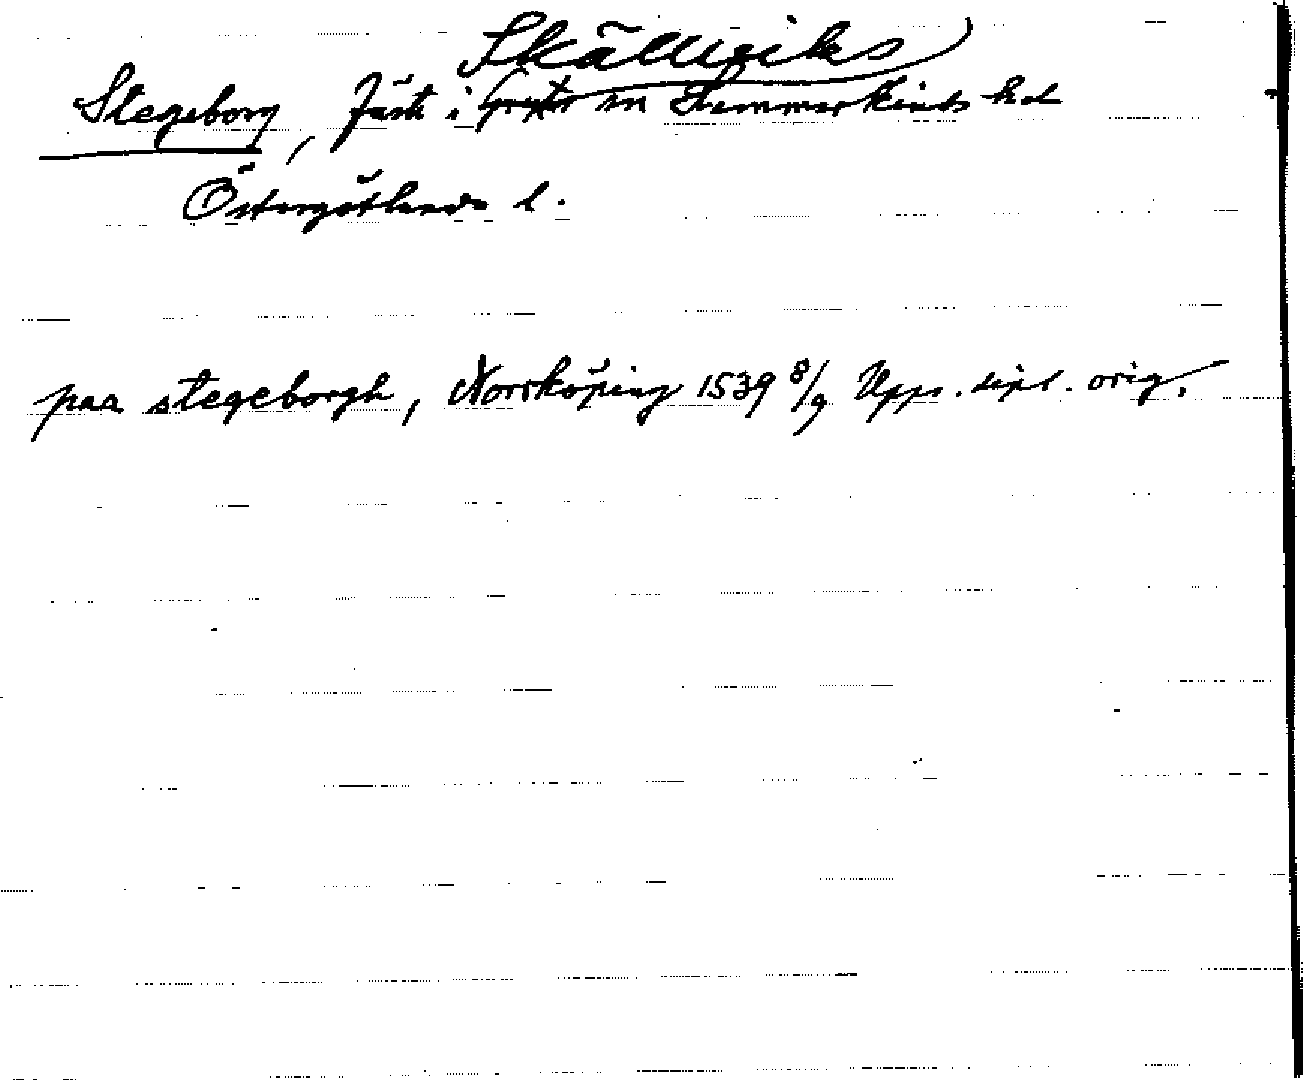 Skällviks
Stegeborg, fäste i sn Hammarkinds hd
Östergötlands l.
paa stegeborgh, Norrköping 1539 8/9 Upps. dipl. orig.